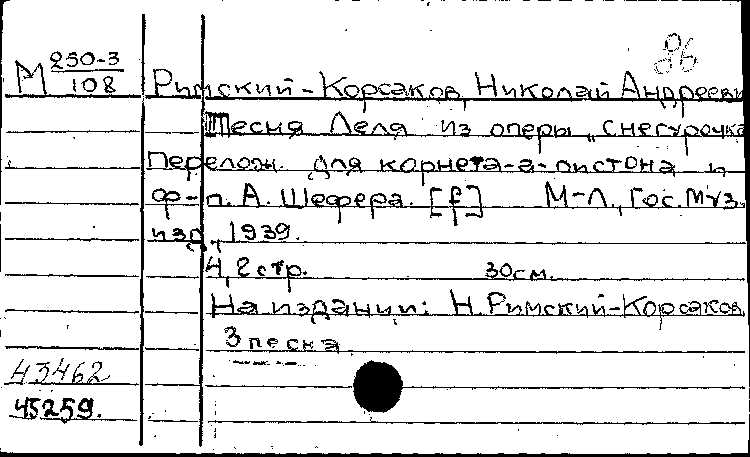 96
М 250-3
108
Римский-Корсаков, Николай Андрееви
Песня Леля из оперы „Снегурочка
Перелож. для корнета-а-пистона и
ф-п. А. Шефера. [f] М-Л., Гос. Муз.
изд., 1939.
4, 2 стр. 30 см.
На издании: Н. Римский-Корсаков,
3 песня
43462
45259.